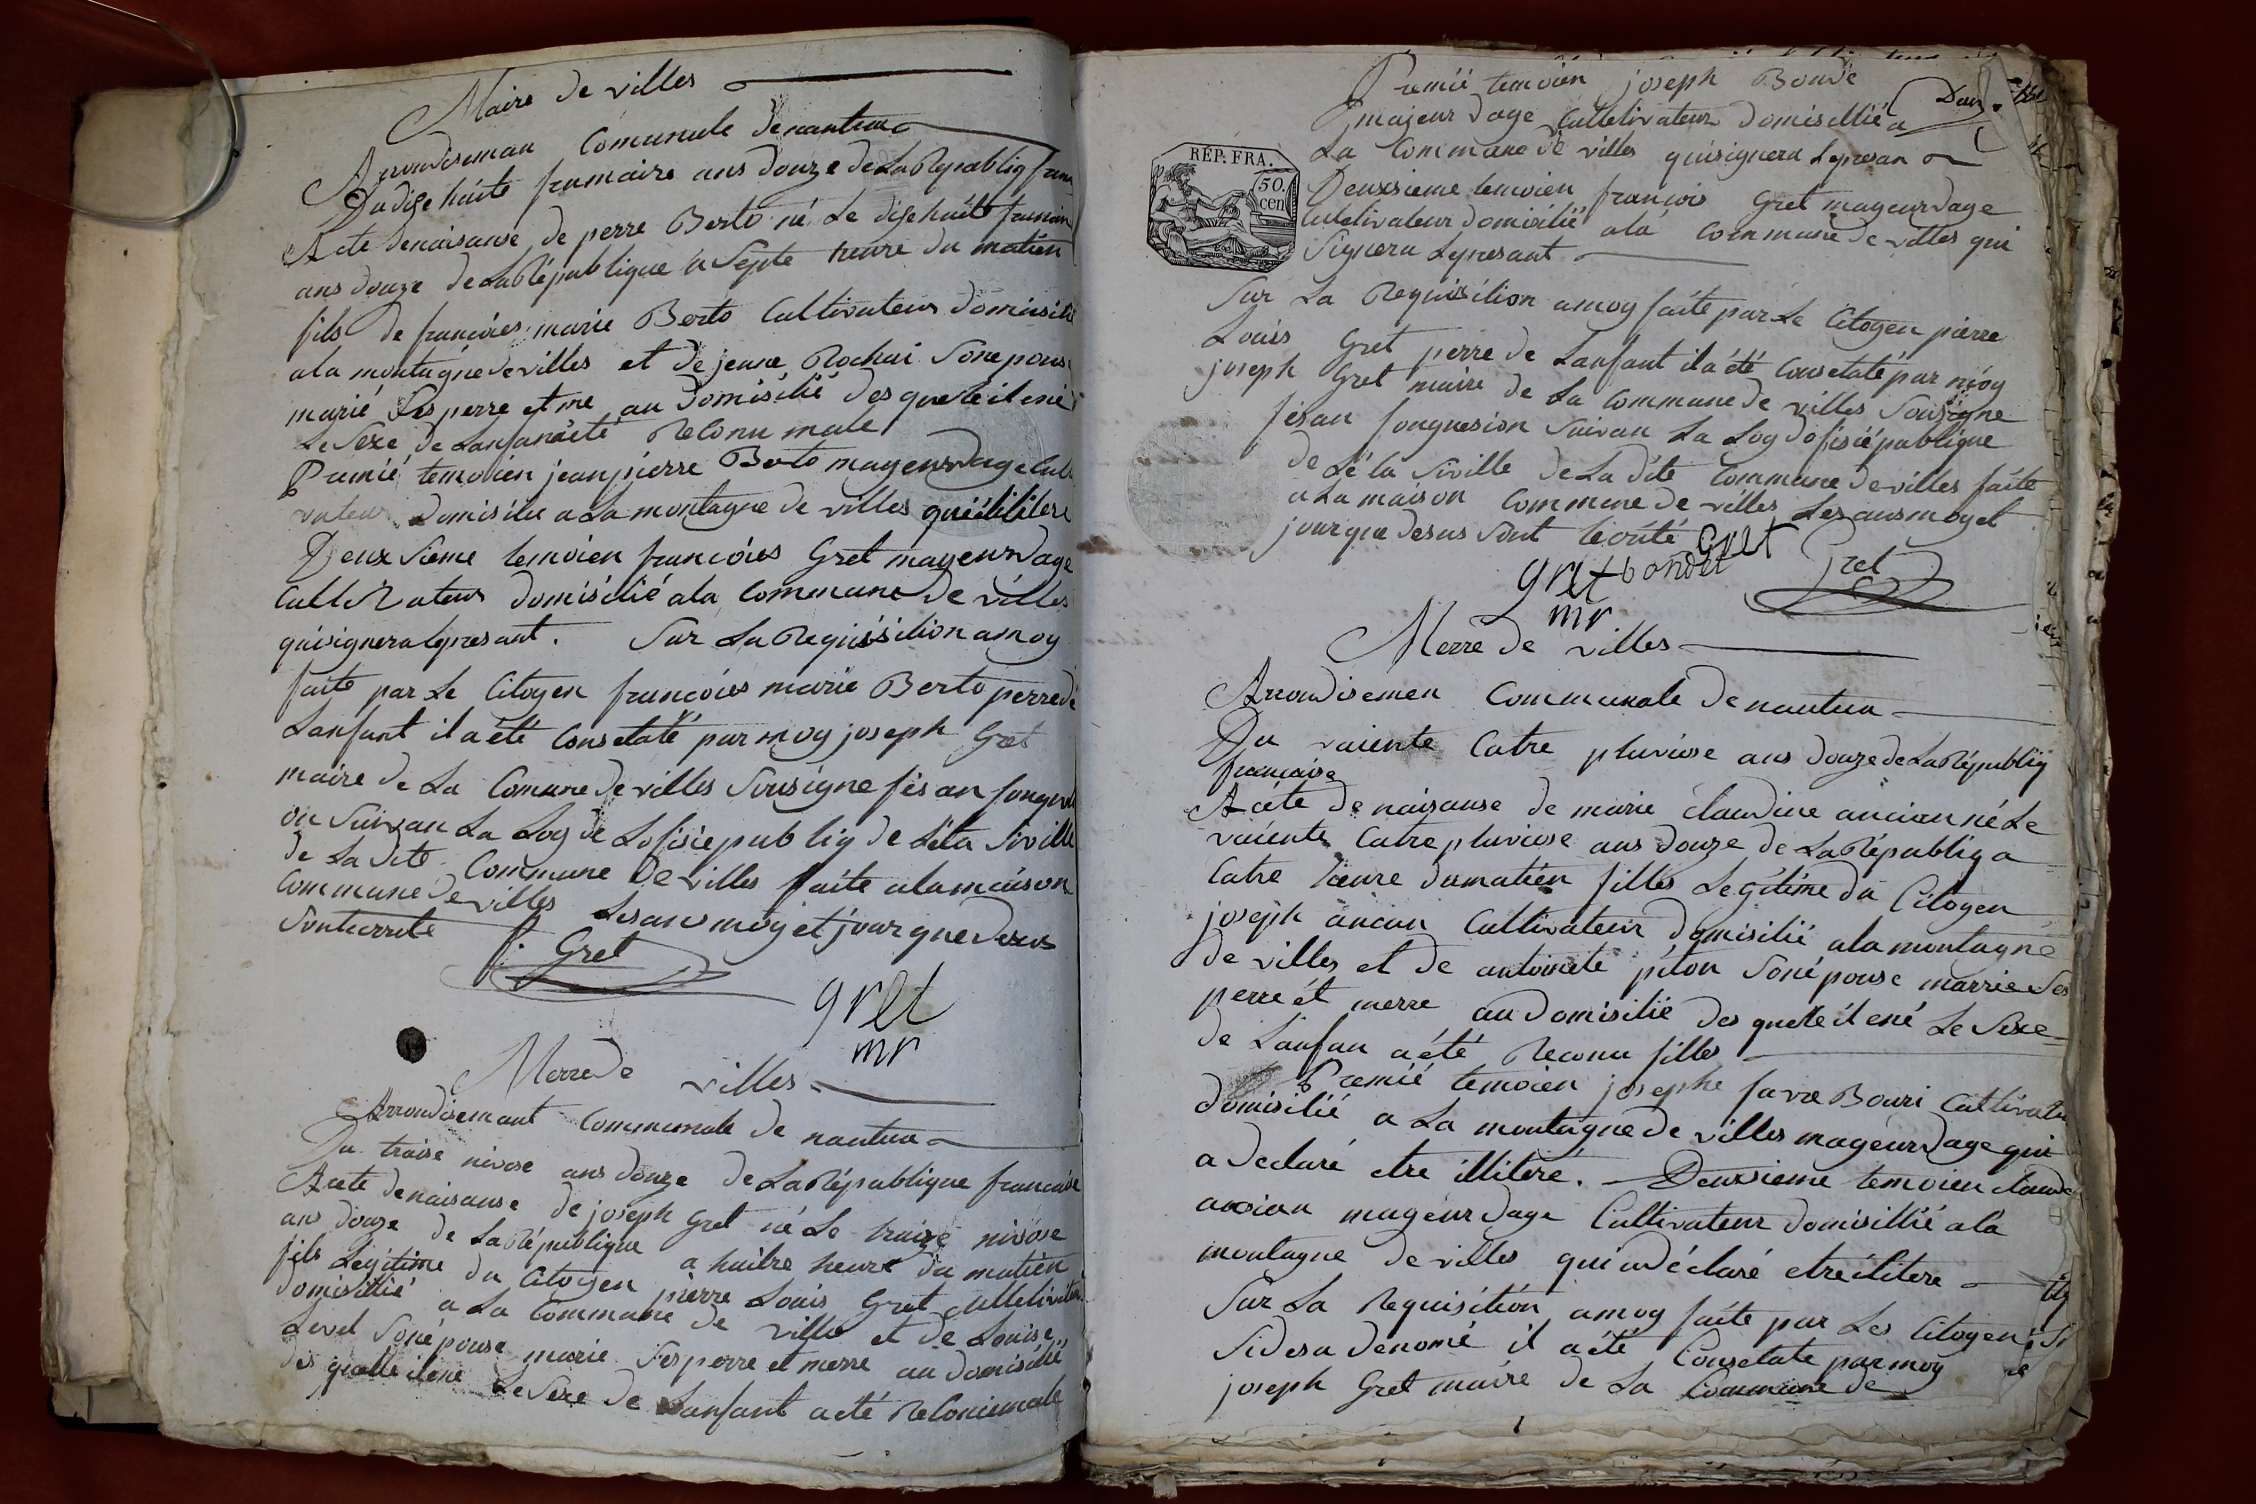 Maire de villes
Arrondiseman Comunale de nantua
Du dise huite frumaire ans douze de La Republiq fran
Acte denaisanse de perre Berto né Le dise huite frumair
ans douze de La République a Septe heure du matien
fils de francóies marie Berto Cultivateur domisilié
ala montagne de villes et de jeane Rochai Sonepouse
marié Ses perre et me au Domisilié des quele il ené
Le Sexe de Lanfan a été Reconu male
Premié temoien jean pierre Berto mageur dage Culti
vateur domisilié a La montagne de villes qui é ilitere
Deuxsieme temoien francóies Gret mageur dage
Cultivateur domisilié ala Commune De villes
qui signera lepresant. Sur La Requisition a moy
faite par Le Citoyen francóies marie Berto perre de
Lanfant il a été Consetaté par moy joseph Gret
maire de La Comune de villes Sousigne fesan fongn
on Suivan La Loy de Lofisié publiq de Leta Siville
de La dite Commune De villes faite ala maison
Commune de villes Lesans moy et jour que desus
Sont ecrite
f. Gret
gret
mr
Merre de villes
Arrondisemant Communale de nantua
Du traise nivose ans douze de La République francaise
Acete denaisanse de joseph Gret né Le traize nivose
ans douze de La République a huitre heure du matien
fils Legitime du Citoyen pierre Louis Gret Culletivateur
domisillié a La Commune de ville et de Louise
Level Soné pouse marie Ses perre et merre au domisilié
des quelle il ene Le Sexe de Lanfant a eté Reconue male
Premié temoien joseph Bonde
majeur dage Culletivateur domisillié a
La Commune de villes qui signera Lepresan
RÉP. FRA.
50.
cen
Deuxsieme temoien francois Gret mageur dage
Culletivateur domisilié ala Commune de villes qui
Signera Lepresant
Sur La Requisition a moy faite par Le Citoyen pierre
Louiss Gret perre de Lanfant il a été Consetaté par moy
joseph Gret maire de La Commune de villes Sousigne
fesan fongnesion Suivan La Loy dofisié publique
de Lé la Siville de La dite Commune de villes faite
a La maison Commune de villes Les ans moy et
jour que desus Sont
gret bondet Gret Gret
mr
Merre de villes
Arrondisemen Communale de nantua
Du vaiente Catre pluviose ans douze de La Républiq
francaise
Acéte de naisanse de marie claudine ancian né Le
vaiente Catre pluviose ans douze de La Républiq a
Catre heure du matien filles Legitime du Citoyen
joseph ancian Cultivateur domisilié ala montagne
de villes et de antoinete piton Soné pouse marrie Ses
perre ét merre au domisilié des quele il ené Le Sexe
de Lanfan a été Reconu filles
Premié temoien josephe favre Bouri Cultivateu
domisilié a La montagne de villes mageur dage qui
a declaré etre illiteré. Deuxsieme temoien claude
ancian mageur dage Cultivateur domisillié ala
montagne de villes qui a déclaré etre ilitere
Sur La Requisition a moy faite par Les Citoyen
Sidesu denomé il a été Consetate par moy
joseph Gret maire de La Commune de